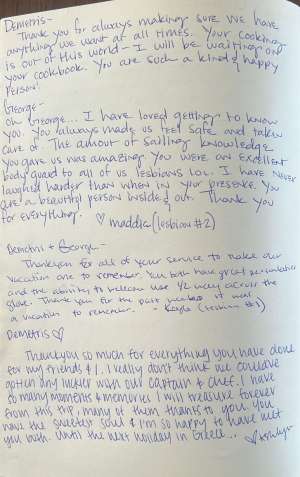 Demetris-
Thank you for always making sure we have
anything we want at all times. Your cooking
is out of this world - I will be waiting on
your cookbook. You are such a kind & happy
person!
George-
Oh George... I have loved getting to know
you. You always made us feel safe and taken
care of. The amount of sailing knowledge
you gave us was amazing. You were an excellent
body guard to all of us lesbians lol. I have NEVER
laughed harder than when in your presence. You
are a beautiful person inside & out. Thank you
for everything. ♡ maddie (lesbian #2)
Demetri + George-
Thank you for all of your service to make our
vacation one to remember. You both have great personalities
and the ability to welcome us 1/2 way across the
globe. Thank you for the past week
a vacation to remember. - Kayla (lesbian #3)
Demetris ♡
Thank you so much for everything you have done
for my friends & I. I really don't think we could've
gotten any luckier with our captain & chef. I have
so many moments & memories I will treasure forever
from this trip, many of them thanks to you. You
have the sweetest soul & I'm so happy to have met
you both. Until the next holiday in Greece...